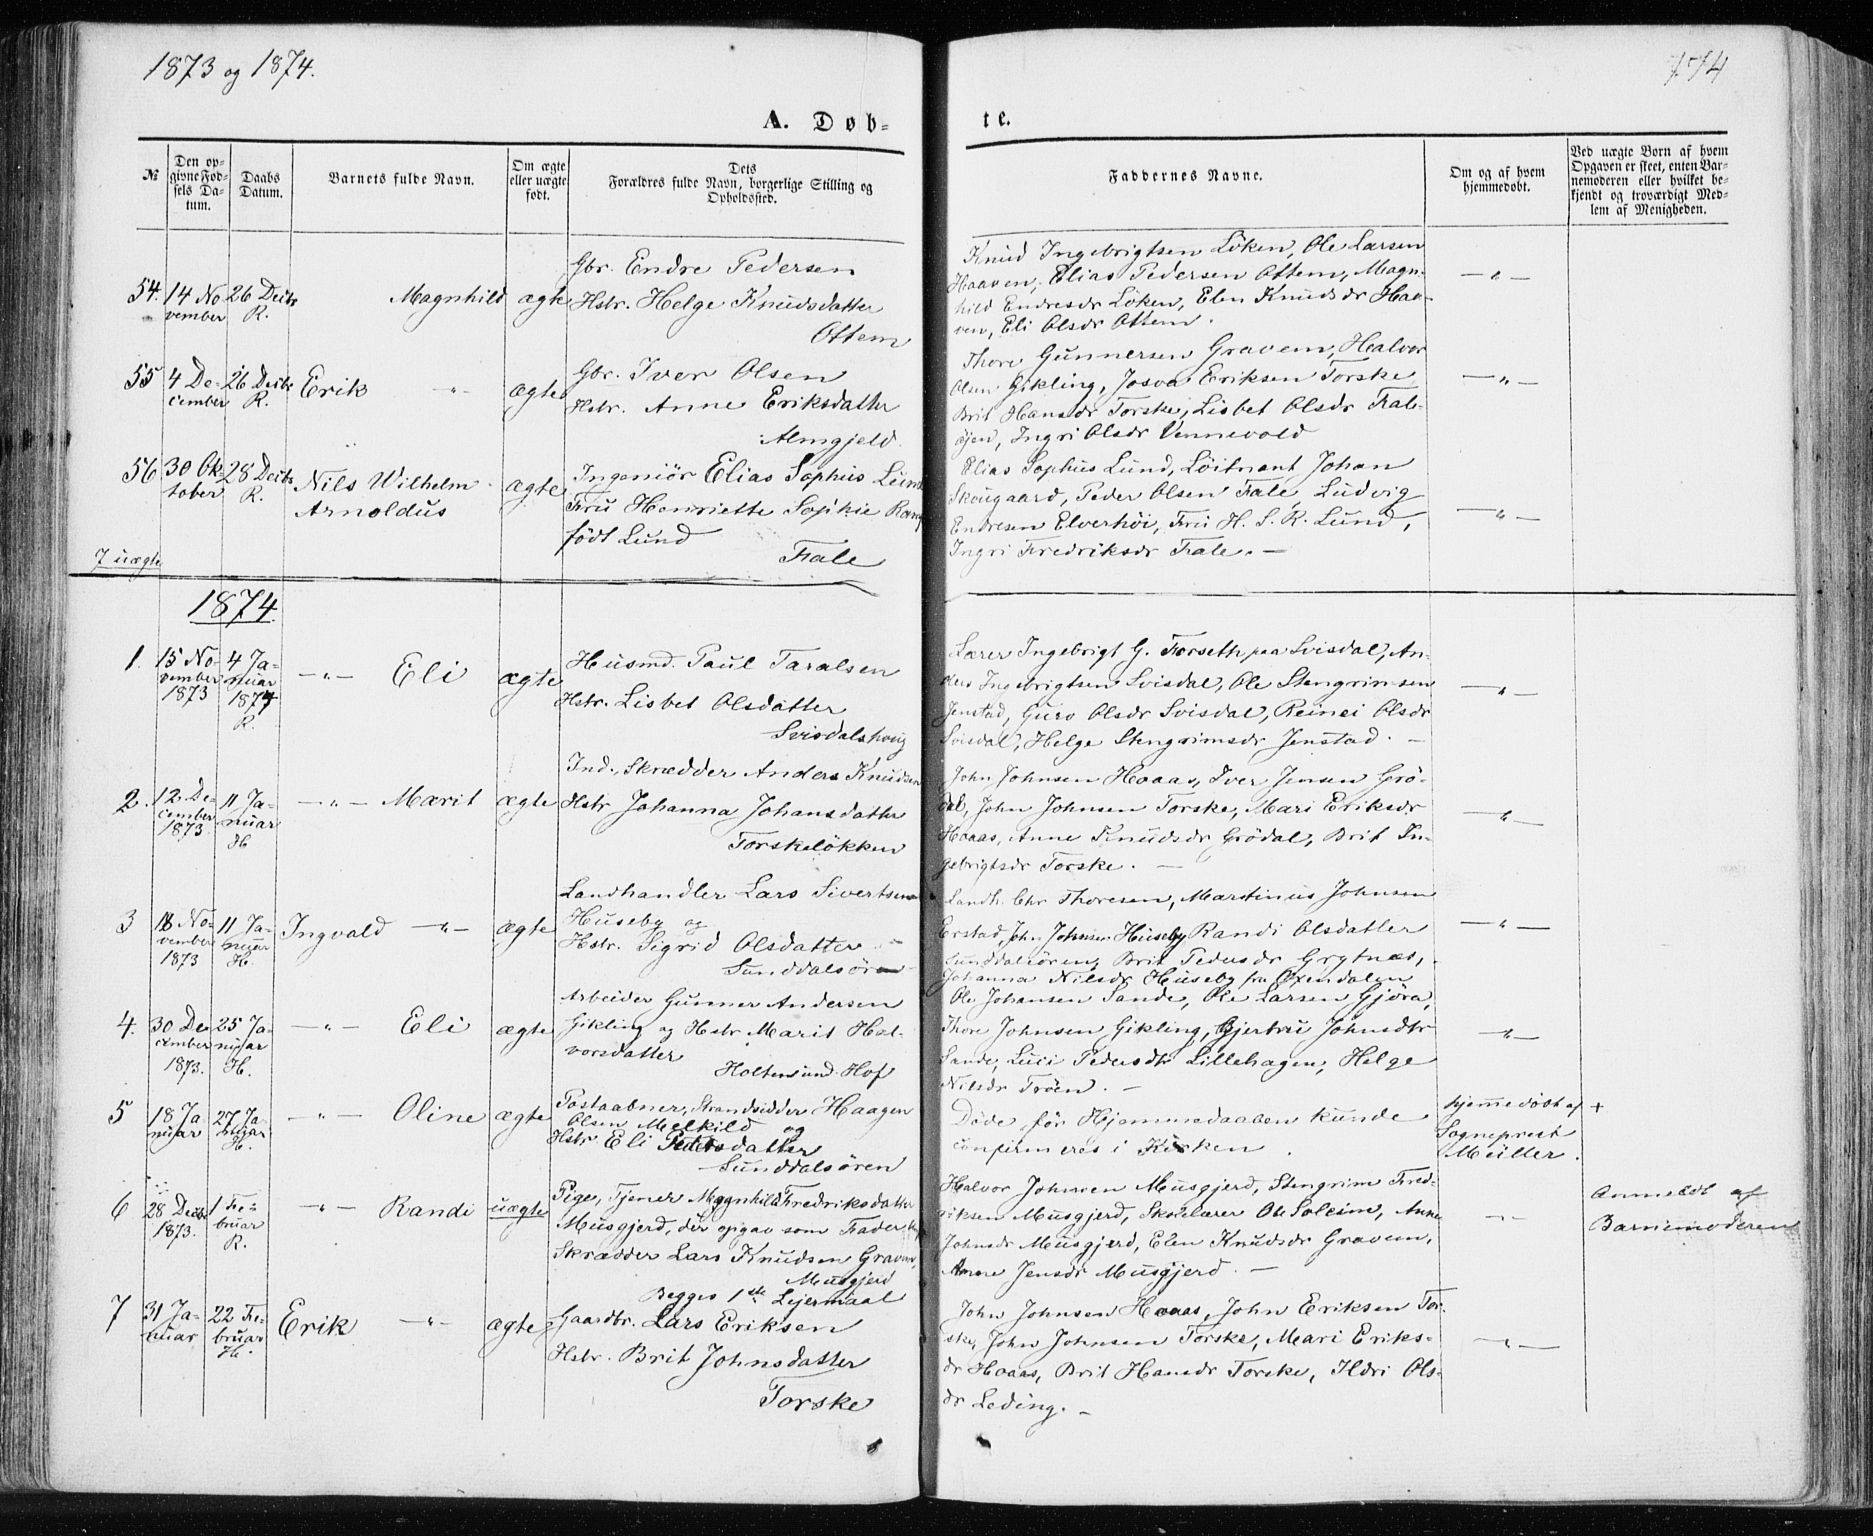 1873 og 1874.
174
A. Døb-
te.
№
Den op-
givne Fød-
sels Da-
tum.
Daabs
Datum.
Barnets fulde Navn.
Om ægte
eller uægte
født.
Dets
Forældres fulde Navn, borgerlige Stilling og
Opholdssted.
Faddernes Navne.
Om og af hvem
hjemmedøbt.
Ved uægte Børn af hvem
Opgaven er skeet, enten Bar-
nemoderen eller hvilket be-
kjendt og troværdigt Med-
lem af Menigheden.
54. 14 No-
vember
26 Decbr
R.
Magnhild
ægte
Gbr. Endre Pedersen
Hstr. Helge Knudsdatter
Ottem
Knud Ingebrigtsen Löken, Ole Larsen
Haaven, Elias Pedersen Ottem, Magn-
hild Endresdr Löken, Elen Knudsdr Haa-
ven, Eli Olsdr Ottem.
—"—
55 4 De-
cember
26 Decbr
R.
Erik "
ægte
Gbr. Iver Olsen
Hstr. Anne Eriksdatter
Almgjeld.
Thore Gunnersen Gravem, Halvor
Olsen Gikling, Josva Eriksen Torske
Brit Hansdr Torske, Lisbet Olsdr Fale-
öjen, Ingri Olsdr Vennevold
—"—
56 30 Ok-
tober
28 Decbr
R.
Nils Wilhelm
Arnoldus
ægte
Ingeniör Elias Sophus Lund
Fru Henriette Sophie
födt Lund
Fale
Elias Sophus Lund, Löitnant Johan
Skougaard, Peder Olsen Fale, Ludvig
Endresen Elverhöi, Fru H. S. R. Lund,
Ingri Fredriksdr Fale. —
—"—
7 uægte
1874
1. 15 No-
vember
1873
4 Ja-
nuar
1874
R.
—"— Eli
ægte
Husmd. Paul Taralsen
Hstr. Lisbet Olsdatter
Svisdalshoug
Lærer Ingebrigt G. Forseth paa Svisdal, An-
ders Ingebrigtsen Svisdal, Ole Stengrimsen
Jenstad, Guro Olsdr Svisdal, Reinei Olsdr
Svisdal, Helge Stengrimsdr Jenstad. —
—"—
2. 12 De-
cember
1873
11 Ja-
nuar
H
—"— Marit
ægte
Ind. Skrædder Anders Knudsen
Hstr Johanna Johansdatter
Torskelökken
John Johnsen Hoaas, Iver Jensen Grö-
dal, John Johnsen Torske, Mari Eriksdr
Hoaas, Anne Knudsdr Grödal, Brit In-
gebrigtsdr Torske. —
—"—
3 18 No-
vember
1873
11 Ja-
nuar
H.
Ingvald —"—
ægte
Landhandler Lars Sivertsen
Huseby og
Hstr. Sigrid Olsdatter
Sunddalsören
Landh. Chr Thoresen, Martinus Johnsen
Erstad, John Johnsen Huseby Randi Olsdatter
Sunddalsören, Brit Pedersdr Grytnæs,
Johanna Nilsdr Huseby fra Öxendalen
—"—
4. 30 De-
cember
1873.
25 Ja-
nuar
H.
—"— Eli
ægte
Arbeider Gunner Andersen
Gikling og Hstr Marit Hal-
vorsdatter
Holten und. Hof
Ole Johansen Sande, Ole Larsen Gjöra,
Thore Johnsen Gikling, Gjertru Johnsdtr
Sande, Luci Pedersdtr Lillehagen, Helge
Nilsdr Tröen. —
—"—
5 18 Ja-
nuar
27 Ja-
nuar
H.
—"— Oline
ægte
Postaabner, Strandsidder Haagen
Olsen Melkild og
Hstr Eli Pedersdatter
Sunddalsören
Döde för Hjemmedaaben kunde
confirmeres i Kirken.
hjemmedöbt af +
Sogneprest
Müller.
6 28 Decbr
1873.
1 Fe-
bruar
R.
—"— Randi
uægte
Pige, Tjener Magnhild Fredriksdatter
Musgjerd, der opgav som Fader
Skrædder Lars Knudsen Gravem,
Musgjerd
Begges 1ste Lejermaal
Halvor Johnsen Musgjerd, Stengrim Fred-
riksen Musgjerd, Skolelærer Ole Soleim, Anne
Johnsdr Musgjerd, Elen Knudsdr Gravem,
Anne Jensdr Musgjerd. —
—"—
Anmeldt af
Barnemoderen
7 31 Ja-
nuar
22 Fe-
bruar
H.
Erik —"—
ægte
Gaardbr. Lars Eriksen
Hstr. Brit Johnsdatter
Torske
John Johnsen Hoaas, John Eriksen Tor-
ske, John Johnsen Torske, Mari Eriks-
dr Hoaas, Brit Hansdr Torske, Ildri Ols-
dr Leding. —
—"—